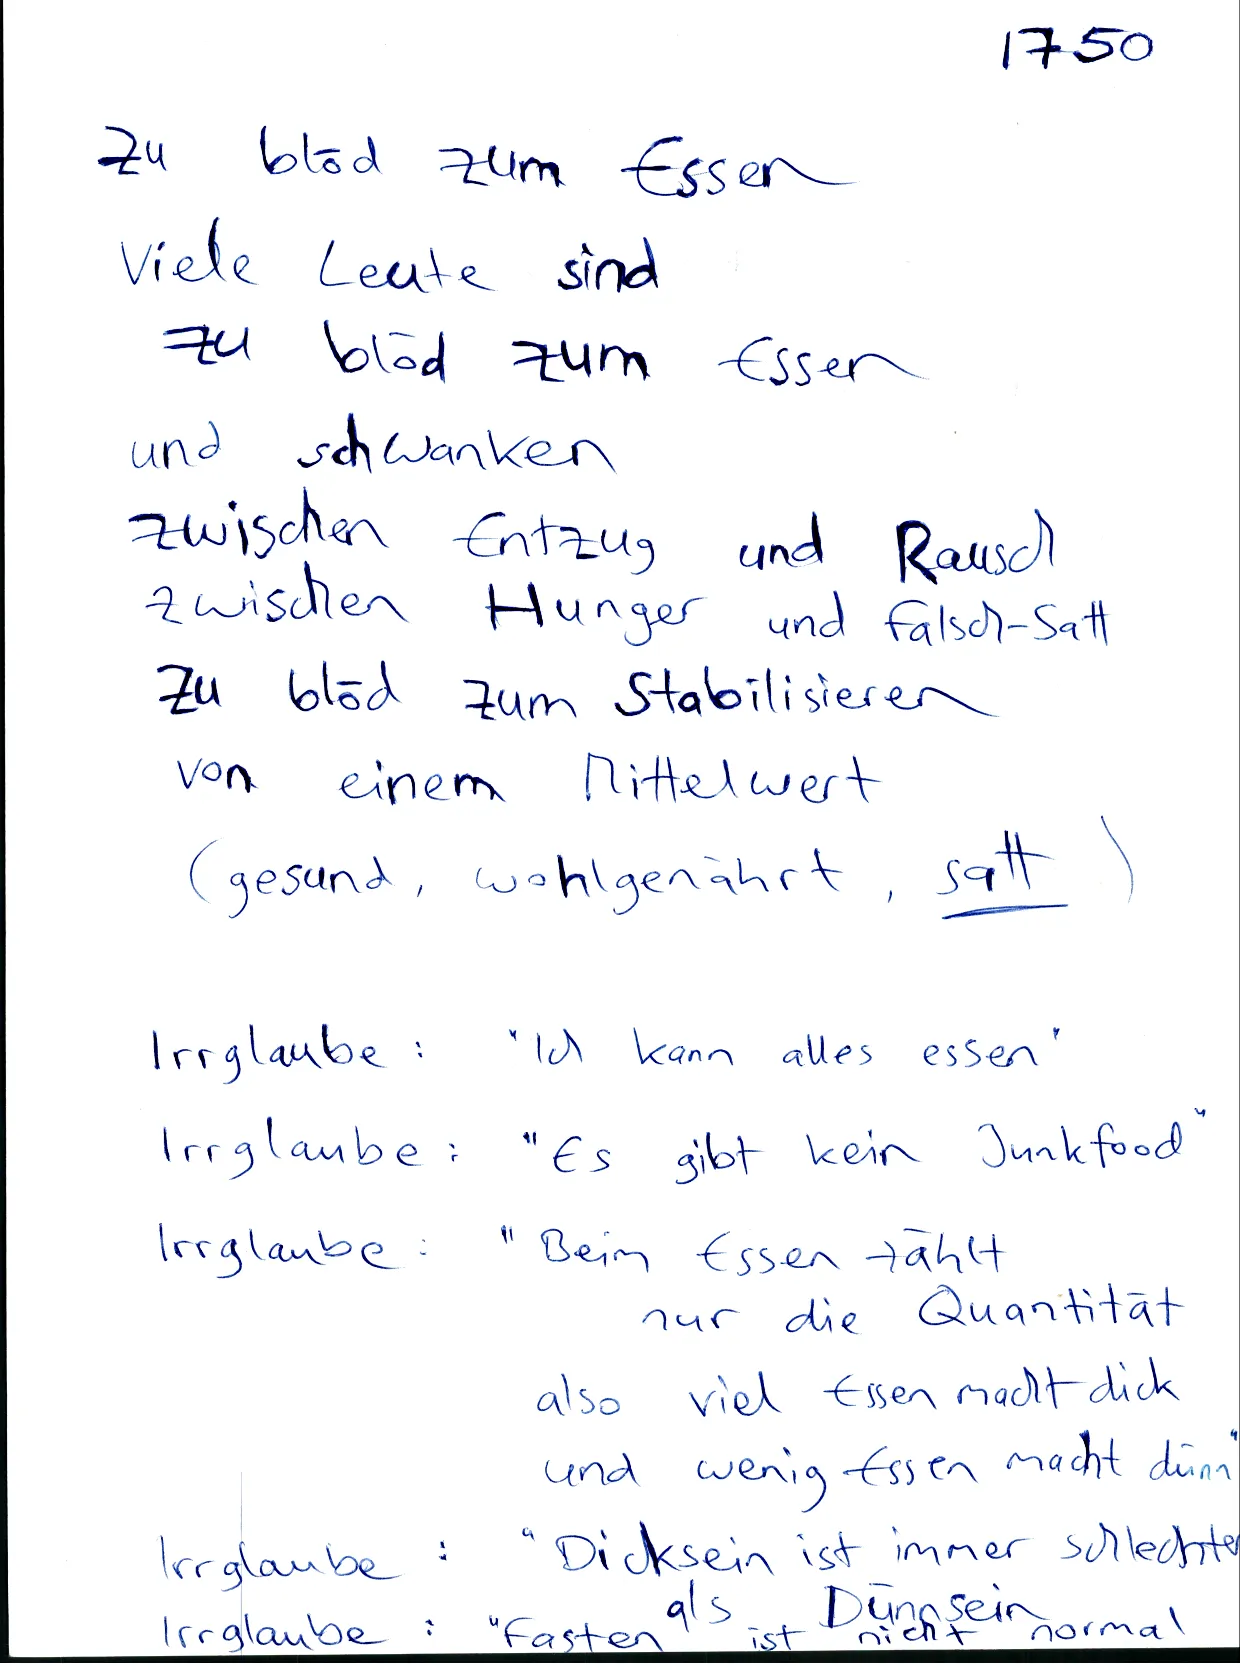 1750
Zu blöd zum Essen
Viele Leute sind
zu blöd zum Essen
und schwanken
zwischen Entzug und Rausch
zwischen Hunger und Falsch-Satt
Zu blöd zum Stabilisieren
von einem Mittelwert
(gesund, wohlgenährt, satt)
Irrglaube: "Ich kann alles essen"
Irrglaube: "Es gibt kein Junkfood"
Irrglaube: "Beim Essen zählt
nur die Quantität
also viel Essen macht dick
und wenig Essen macht dünn"
Irrglaube: "Dicksein ist immer schlechter
als Dünnsein
Irrglaube: "Fasten ist nicht normal